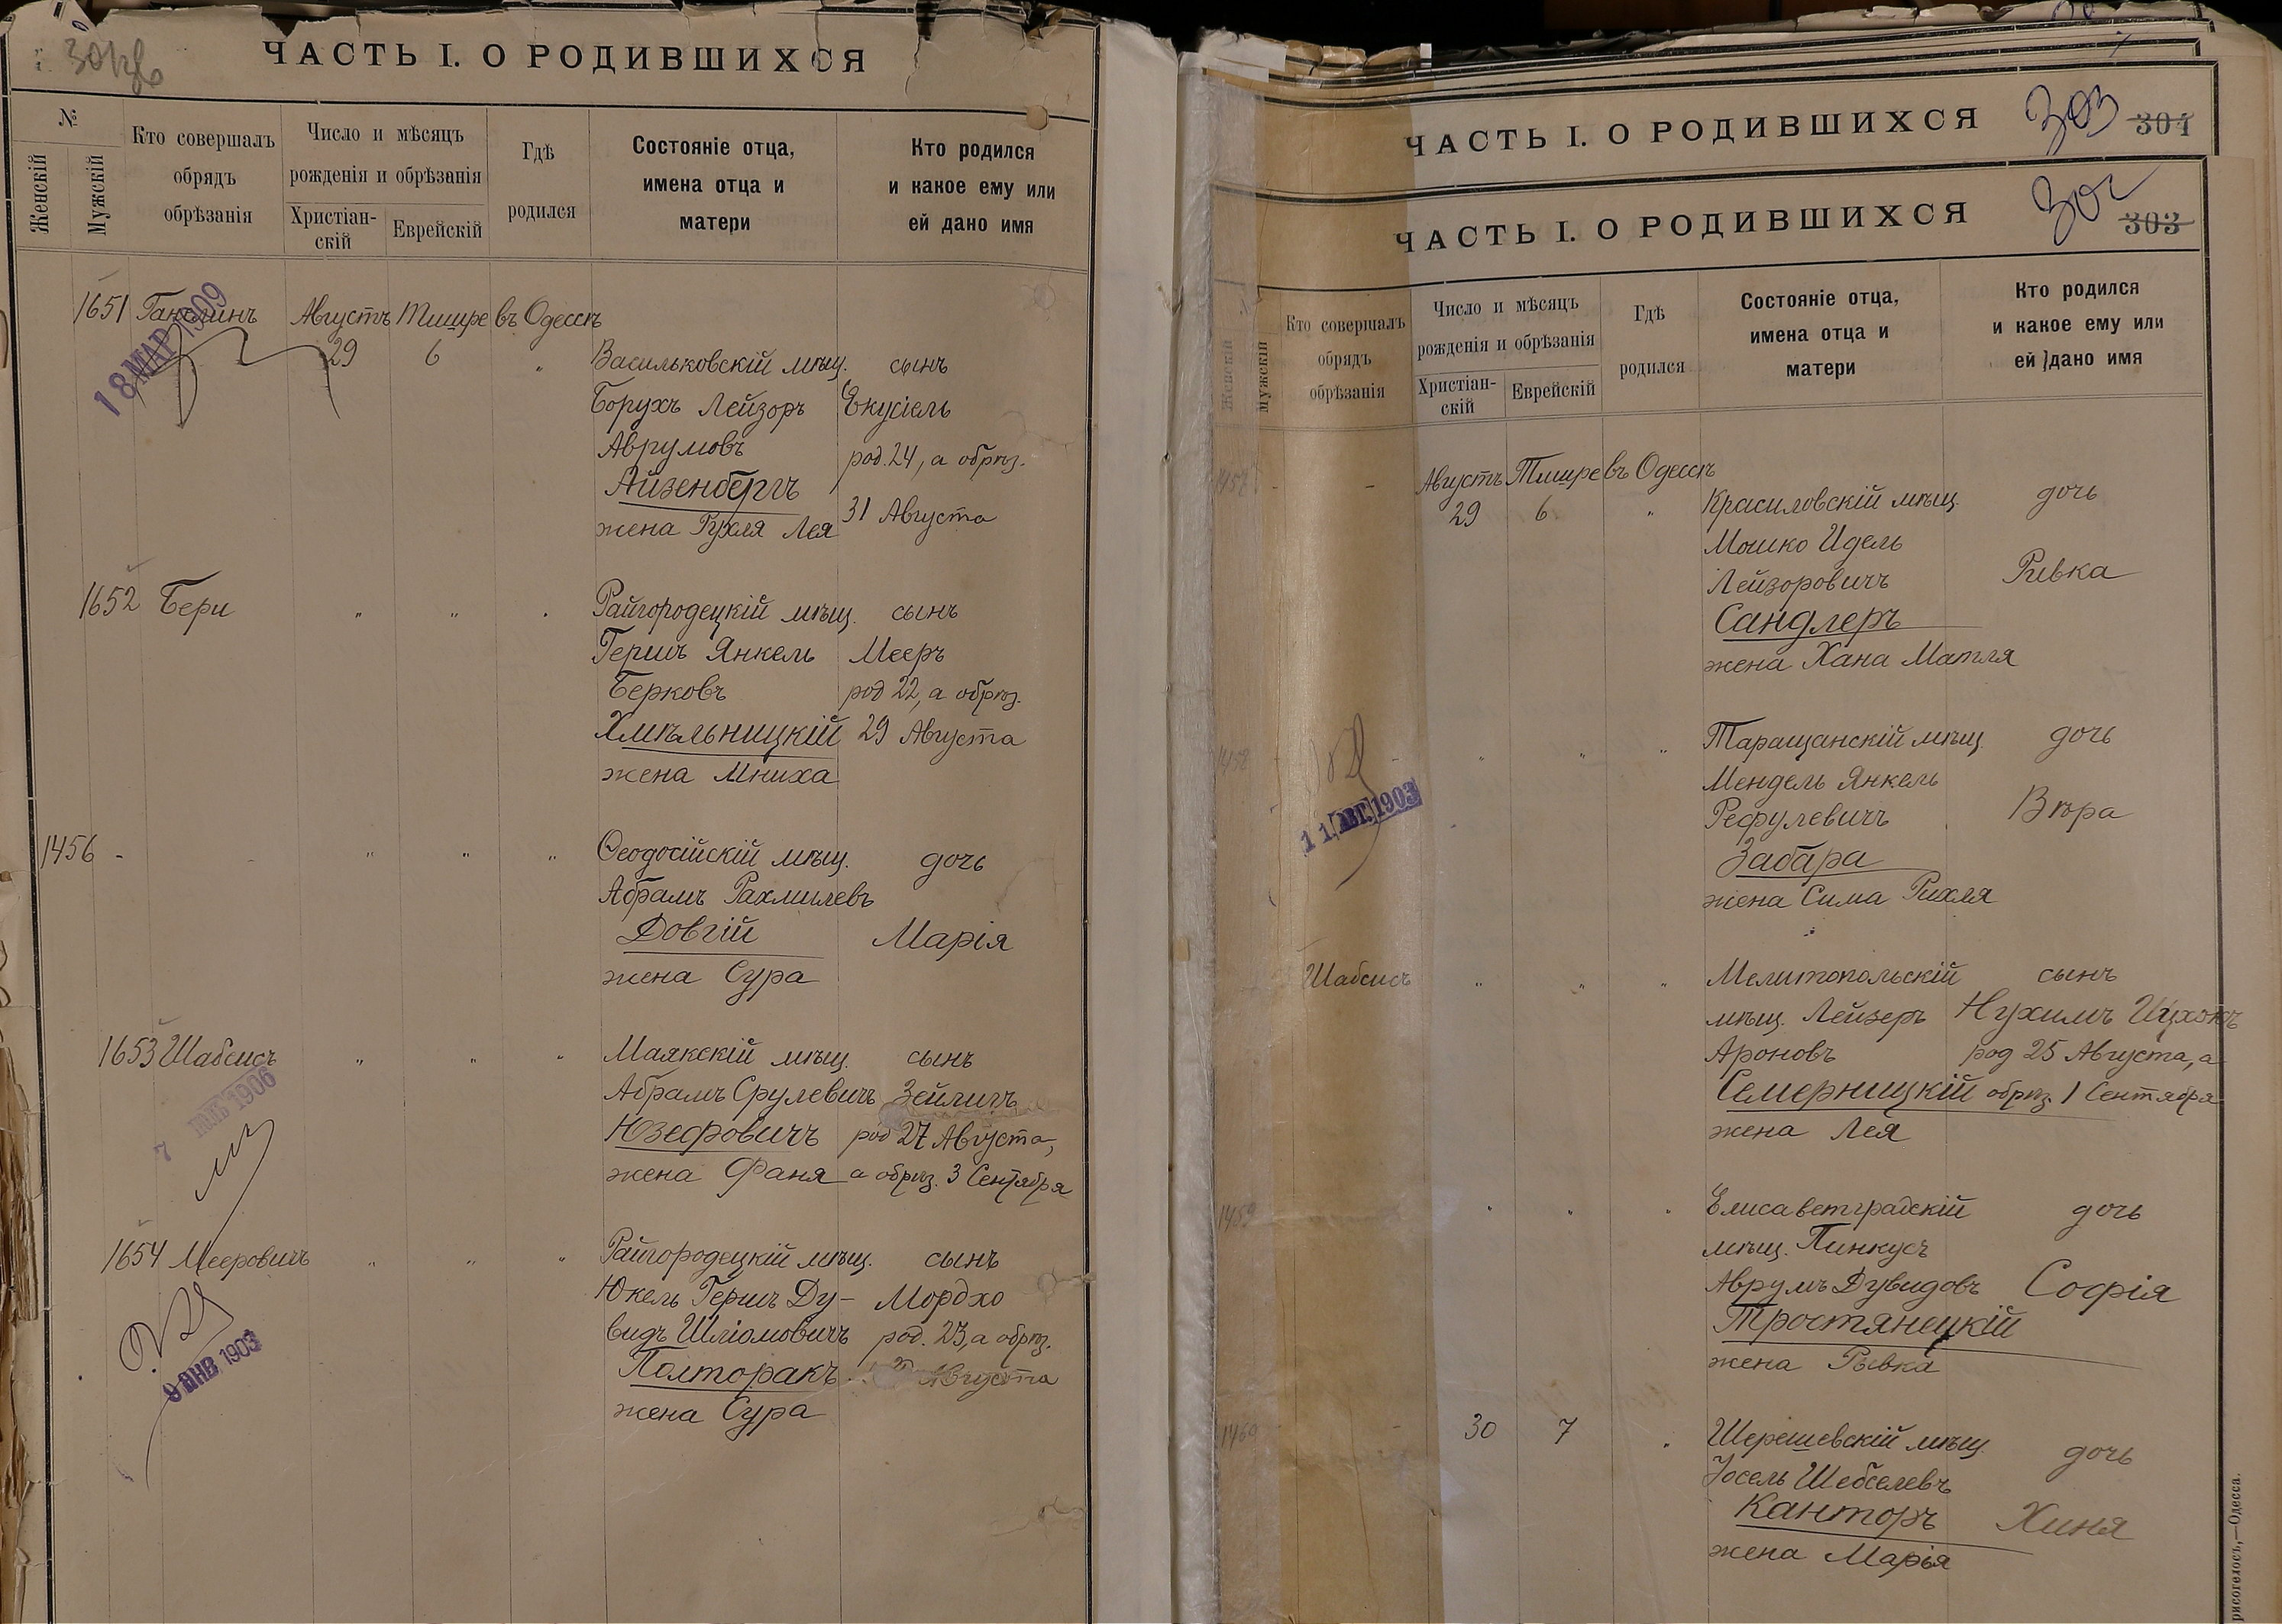 ЧАСТЬ I. О РОДИВШИХСЯ
№
Женскій
Мужскій
Кто совершалъ
обрядъ
обрѣзанія
Число и мѣсяцъ
рожденія и обрѣзанія
Христіан-
скій
Еврейскій
Гдѣ
родился
Состояніе отца,
имена отца и
матери
Кто родился
и какое ему или
ей дано имя
1651 Августъ Тишре въ Одессѣ
18 МАР 1909
29 6 " Васильковскій мѣщ. сынъ
Борухъ Лейзоръ Екусіель
Аврумовъ род. 24, а обрѣз.
Айзенбергъ
жена Рухля Лея 31 Августа
1652 Бери " " " Райгородецкій мѣщ. сынъ
Гершъ Янкель Мееръ
Берковъ род 22, а обрѣз.
Хмѣльницкій 29 Августа
жена Мниха
1456 - - " " " Ѳеодосійскій мѣщ. дочь
Абрамъ Рахмилевъ
Довгій Марія
жена Сура
1653 Шабсисъ " " " Маякскій мѣщ. сынъ
1906
7
Абрамъ Срулевичъ Зейлигъ
Юзефовичъ род 27 Августа,
жена Фаня а обрѣз. 3 Сентября
1654 Мееровичъ " " " Райгородецкій мѣщ. сынъ
Юкель Гершъ Ду- Мордхо
видъ Шліомовичъ род. 23, а обрѣз.
Полторакъ Августа
9 ЯНВ 1903
жена Сура
ЧАСТЬ I. О РОДИВШИХСЯ 303 304
ЧАСТЬ I. О РОДИВШИХСЯ 302 303
Женскій
Мужскій
Кто совершалъ
обрядъ
обрѣзанія
Число и мѣсяцъ
рожденія и обрѣзанія
Христіан-
скій
Еврейскій
Гдѣ
родился
Состояніе отца,
имена отца и
матери
Кто родился
и какое ему или
ей дано имя
1457 - - Августъ Тишре въ Одессѣ
29 6 " Красиловскій мѣщ. дочь
Мошко Идель
Лейзоровичъ Ривка
Сандлеръ
жена Хана Матля
1458 - - " " " Таращанскій мѣщ. дочь
11 АВГ. 1903
Мендель Янкель
Рефулевичъ Вѣра
Забара
жена Сима Рихля
Шабсисъ " " " Мелитопольскій сынъ
мѣщ. Лейзеръ Нухимъ Ицхокъ
Ароновъ род 25 Августа, а
Семерницкій обрѣз. 1 Сентября
жена Лея
1459 " " " Елисаветградскій дочь
мѣщ. Пинкусъ
Аврумъ Дувидовъ Софія
Тростянецкій
жена Рывка
1460 - 30 7 " Шерешевскій мѣщ. дочь
Іосель Шебселевъ
Канторъ Хиня
жена Марія